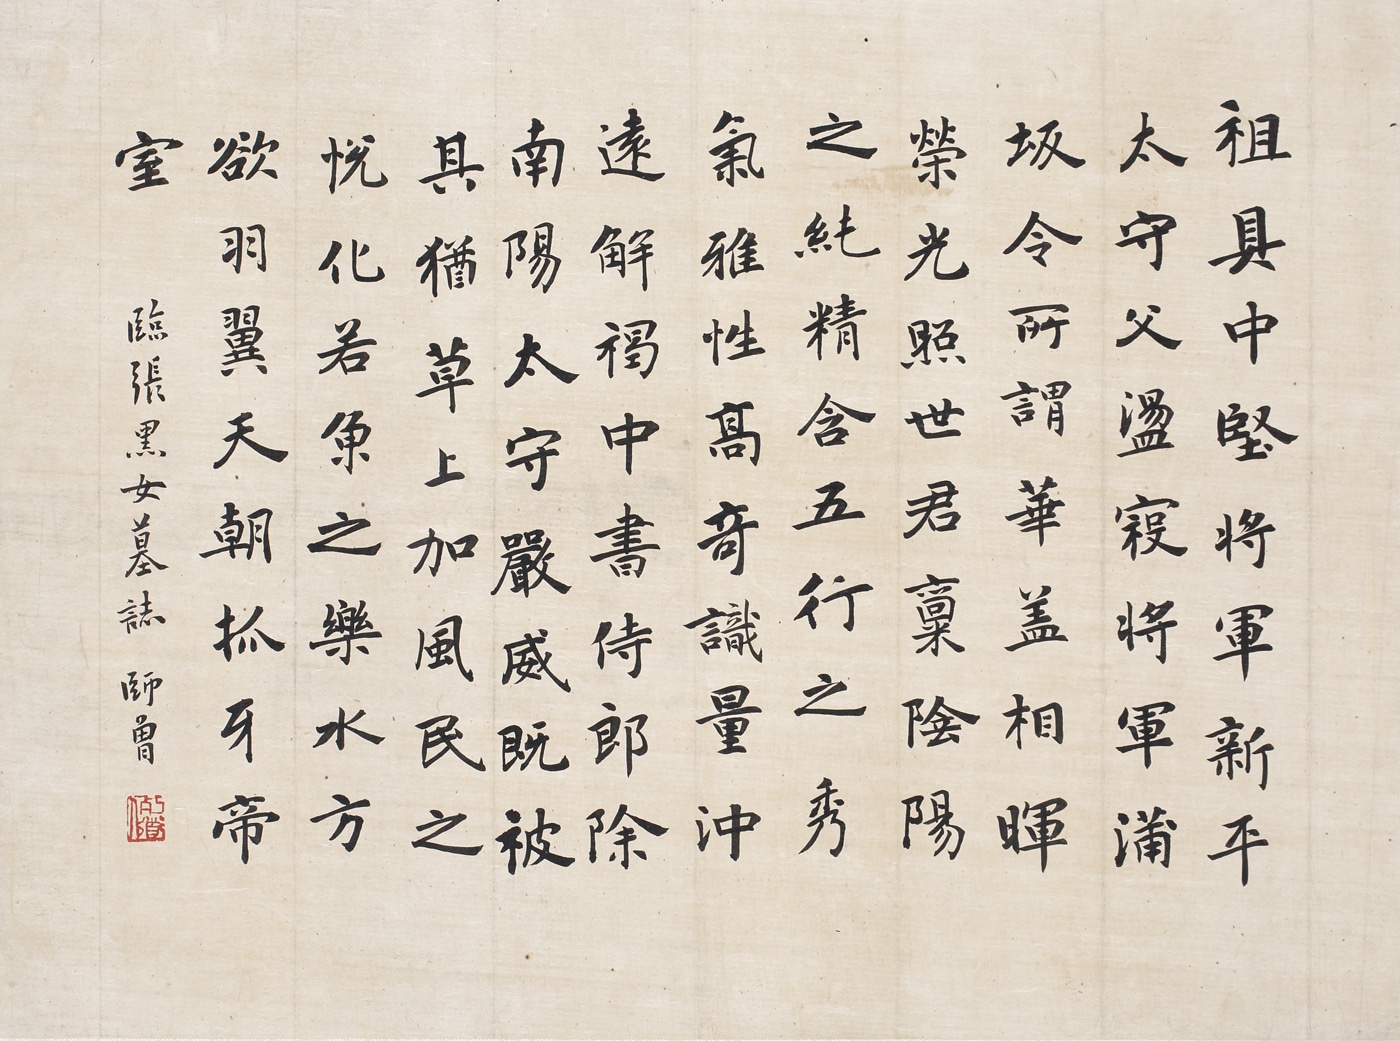 祖具中堅將軍新平
太守父盪寇將軍蒲
坂令所謂華盖相暉
榮光照世君稟陰陽
之純精含五行之秀
氣雅性高奇識量沖
遠解褐中書侍郎除
南陽太守嚴威既被
其猶草上加風民之
悅化若魚之樂水方
欲羽翼天朝抓牙帝
室
臨張黑女墓誌 師曾